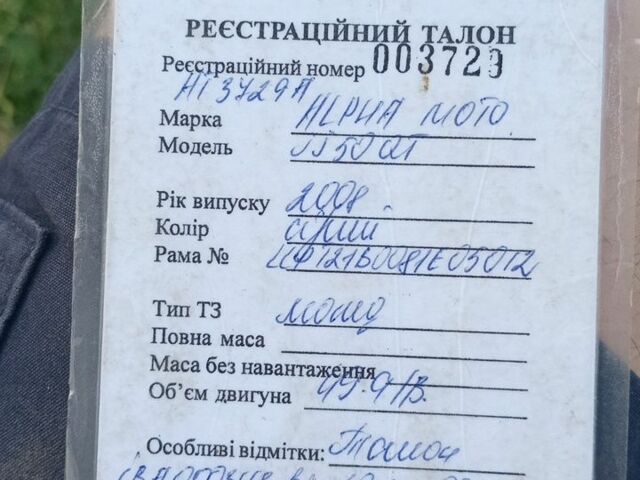 РЕЄСТРАЦІЙНИЙ ТАЛОН
Реєстраційний номер 003729
НТ3729А
Марка ALPHA МОТО
Модель 50QT
Рік випуску 2008
Колір сірий
Рама №
Тип ТЗ мопед
Повна маса
Маса без навантаження
Об'єм двигуна 49.9
Особливі відмітки: Талон